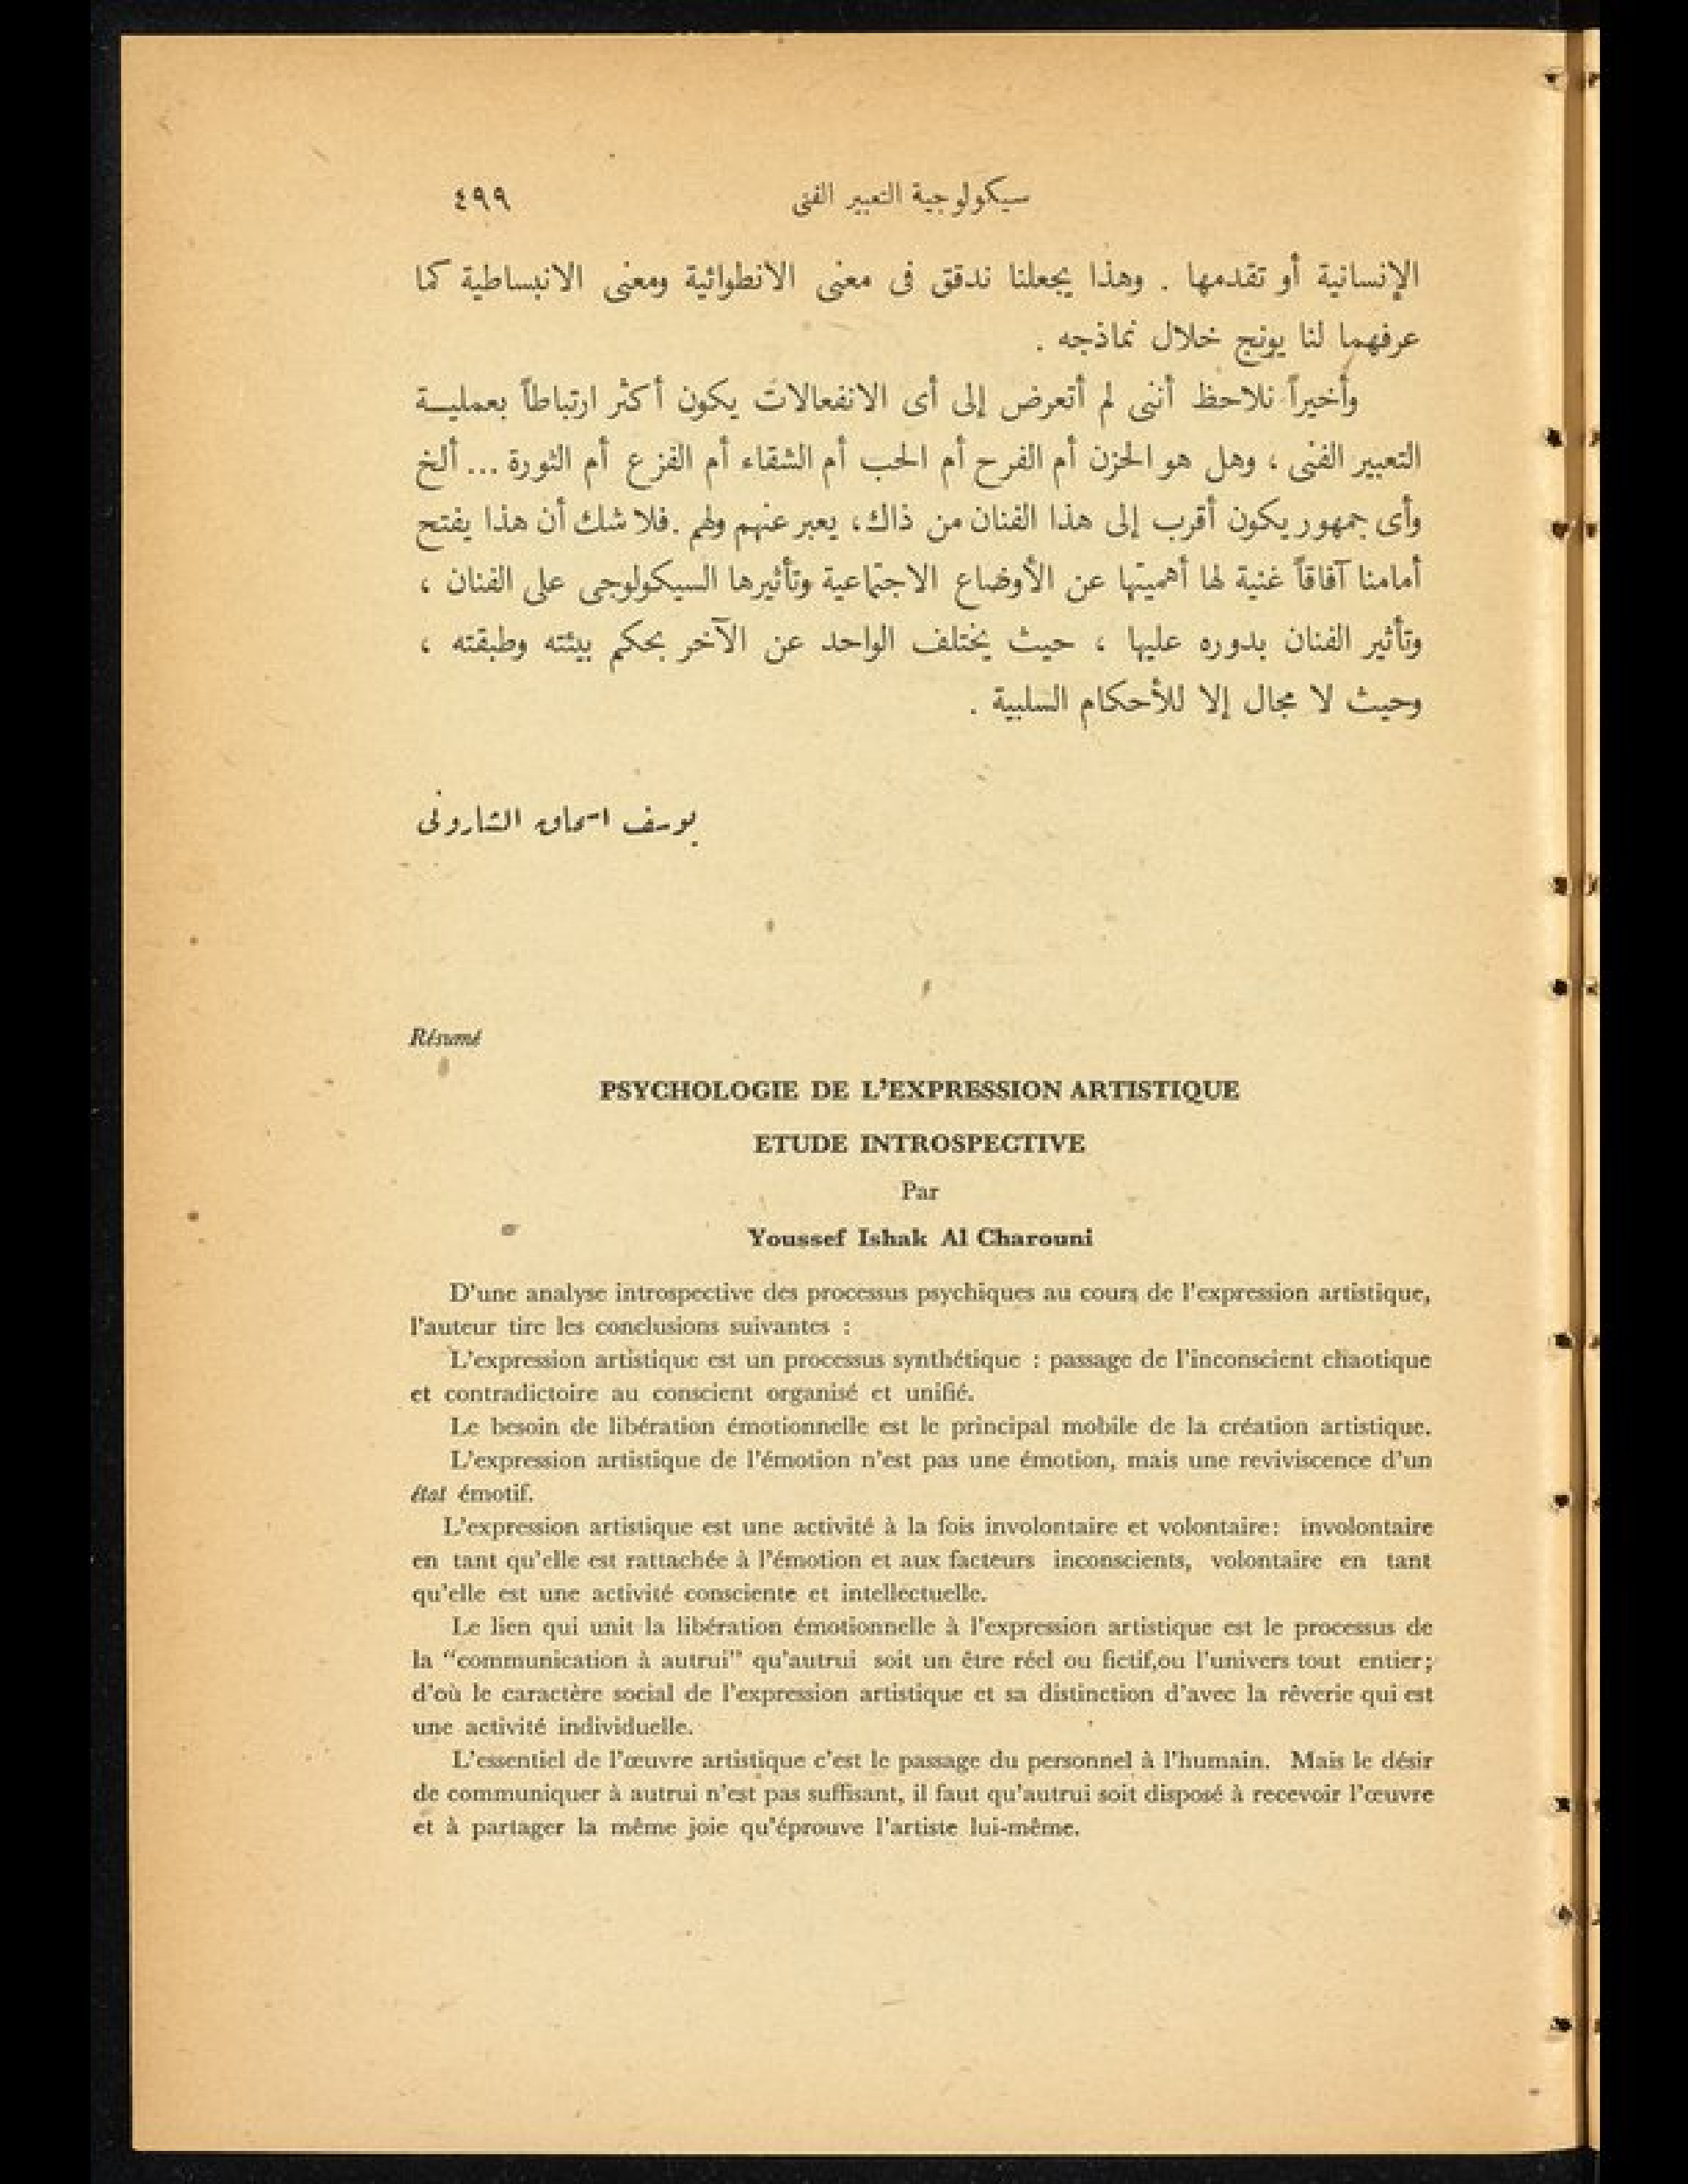 سيكولوجية التعبير الفنى ٤٩٩
الإنسانية أو تقدمها . وهذا يجعلنا ندقق فى معنى الانطوائية ومعنى الانبساطية كما
عرفهما لنا يونج خلال نماذجه .
وأخيراً نلاحظ أننى لم أتعرض إلى أى الانفعالات يكون أكثر ارتباطاً بعمليـــة
التعبير الفنى ، وهل هو الحزن أم الفرح أم الحب أم الشقاء أم الفزع أم الثورة ... ألخ
وأى جمهور يكون أقرب إلى هذا الفنان من ذاك ، يعبر عنهم ولهم . فلا شك أن هذا يفتح
أمامنا آفاقاً غنية لها أهميتها عن الأوضاع الاجتماعية وتأثيرها السيكولوجى على الفنان ،
وتأثير الفنان بدوره عليها ، حيث يختلف الواحد عن الآخر بحكم بيئته وطبقته ،
وحيث لا مجال إلا للأحكام السلبية .
يوسف اسحاق الشارونى
Résumé
PSYCHOLOGIE DE L'EXPRESSION ARTISTIQUE
ETUDE INTROSPECTIVE
Par
Youssef Ishak Al Charouni
D'une analyse introspective des processus psychiques au cours de l'expression artistique,
l'auteur tire les conclusions suivantes :
L'expression artistique est un processus synthétique : passage de l'inconscient chaotique
et contradictoire au conscient organisé et unifié.
Le besoin de libération émotionnelle est le principal mobile de la création artistique.
L'expression artistique de l'émotion n'est pas une émotion, mais une reviviscence d'un
état émotif.
L'expression artistique est une activité à la fois involontaire et volontaire: involontaire
en tant qu'elle est rattachée à l'émotion et aux facteurs inconscients, volontaire en tant
qu'elle est une activité consciente et intellectuelle.
Le lien qui unit la libération émotionnelle à l'expression artistique est le processus de
la "communication à autrui" qu'autrui soit un être réel ou fictif,ou l'univers tout entier;
d'où le caractère social de l'expression artistique et sa distinction d'avec la rêverie qui est
une activité individuelle.
L'essentiel de l'œuvre artistique c'est le passage du personnel à l'humain. Mais le désir
de communiquer à autrui n'est pas suffisant, il faut qu'autrui soit disposé à recevoir l'œuvre
et à partager la même joie qu'éprouve l'artiste lui-même.